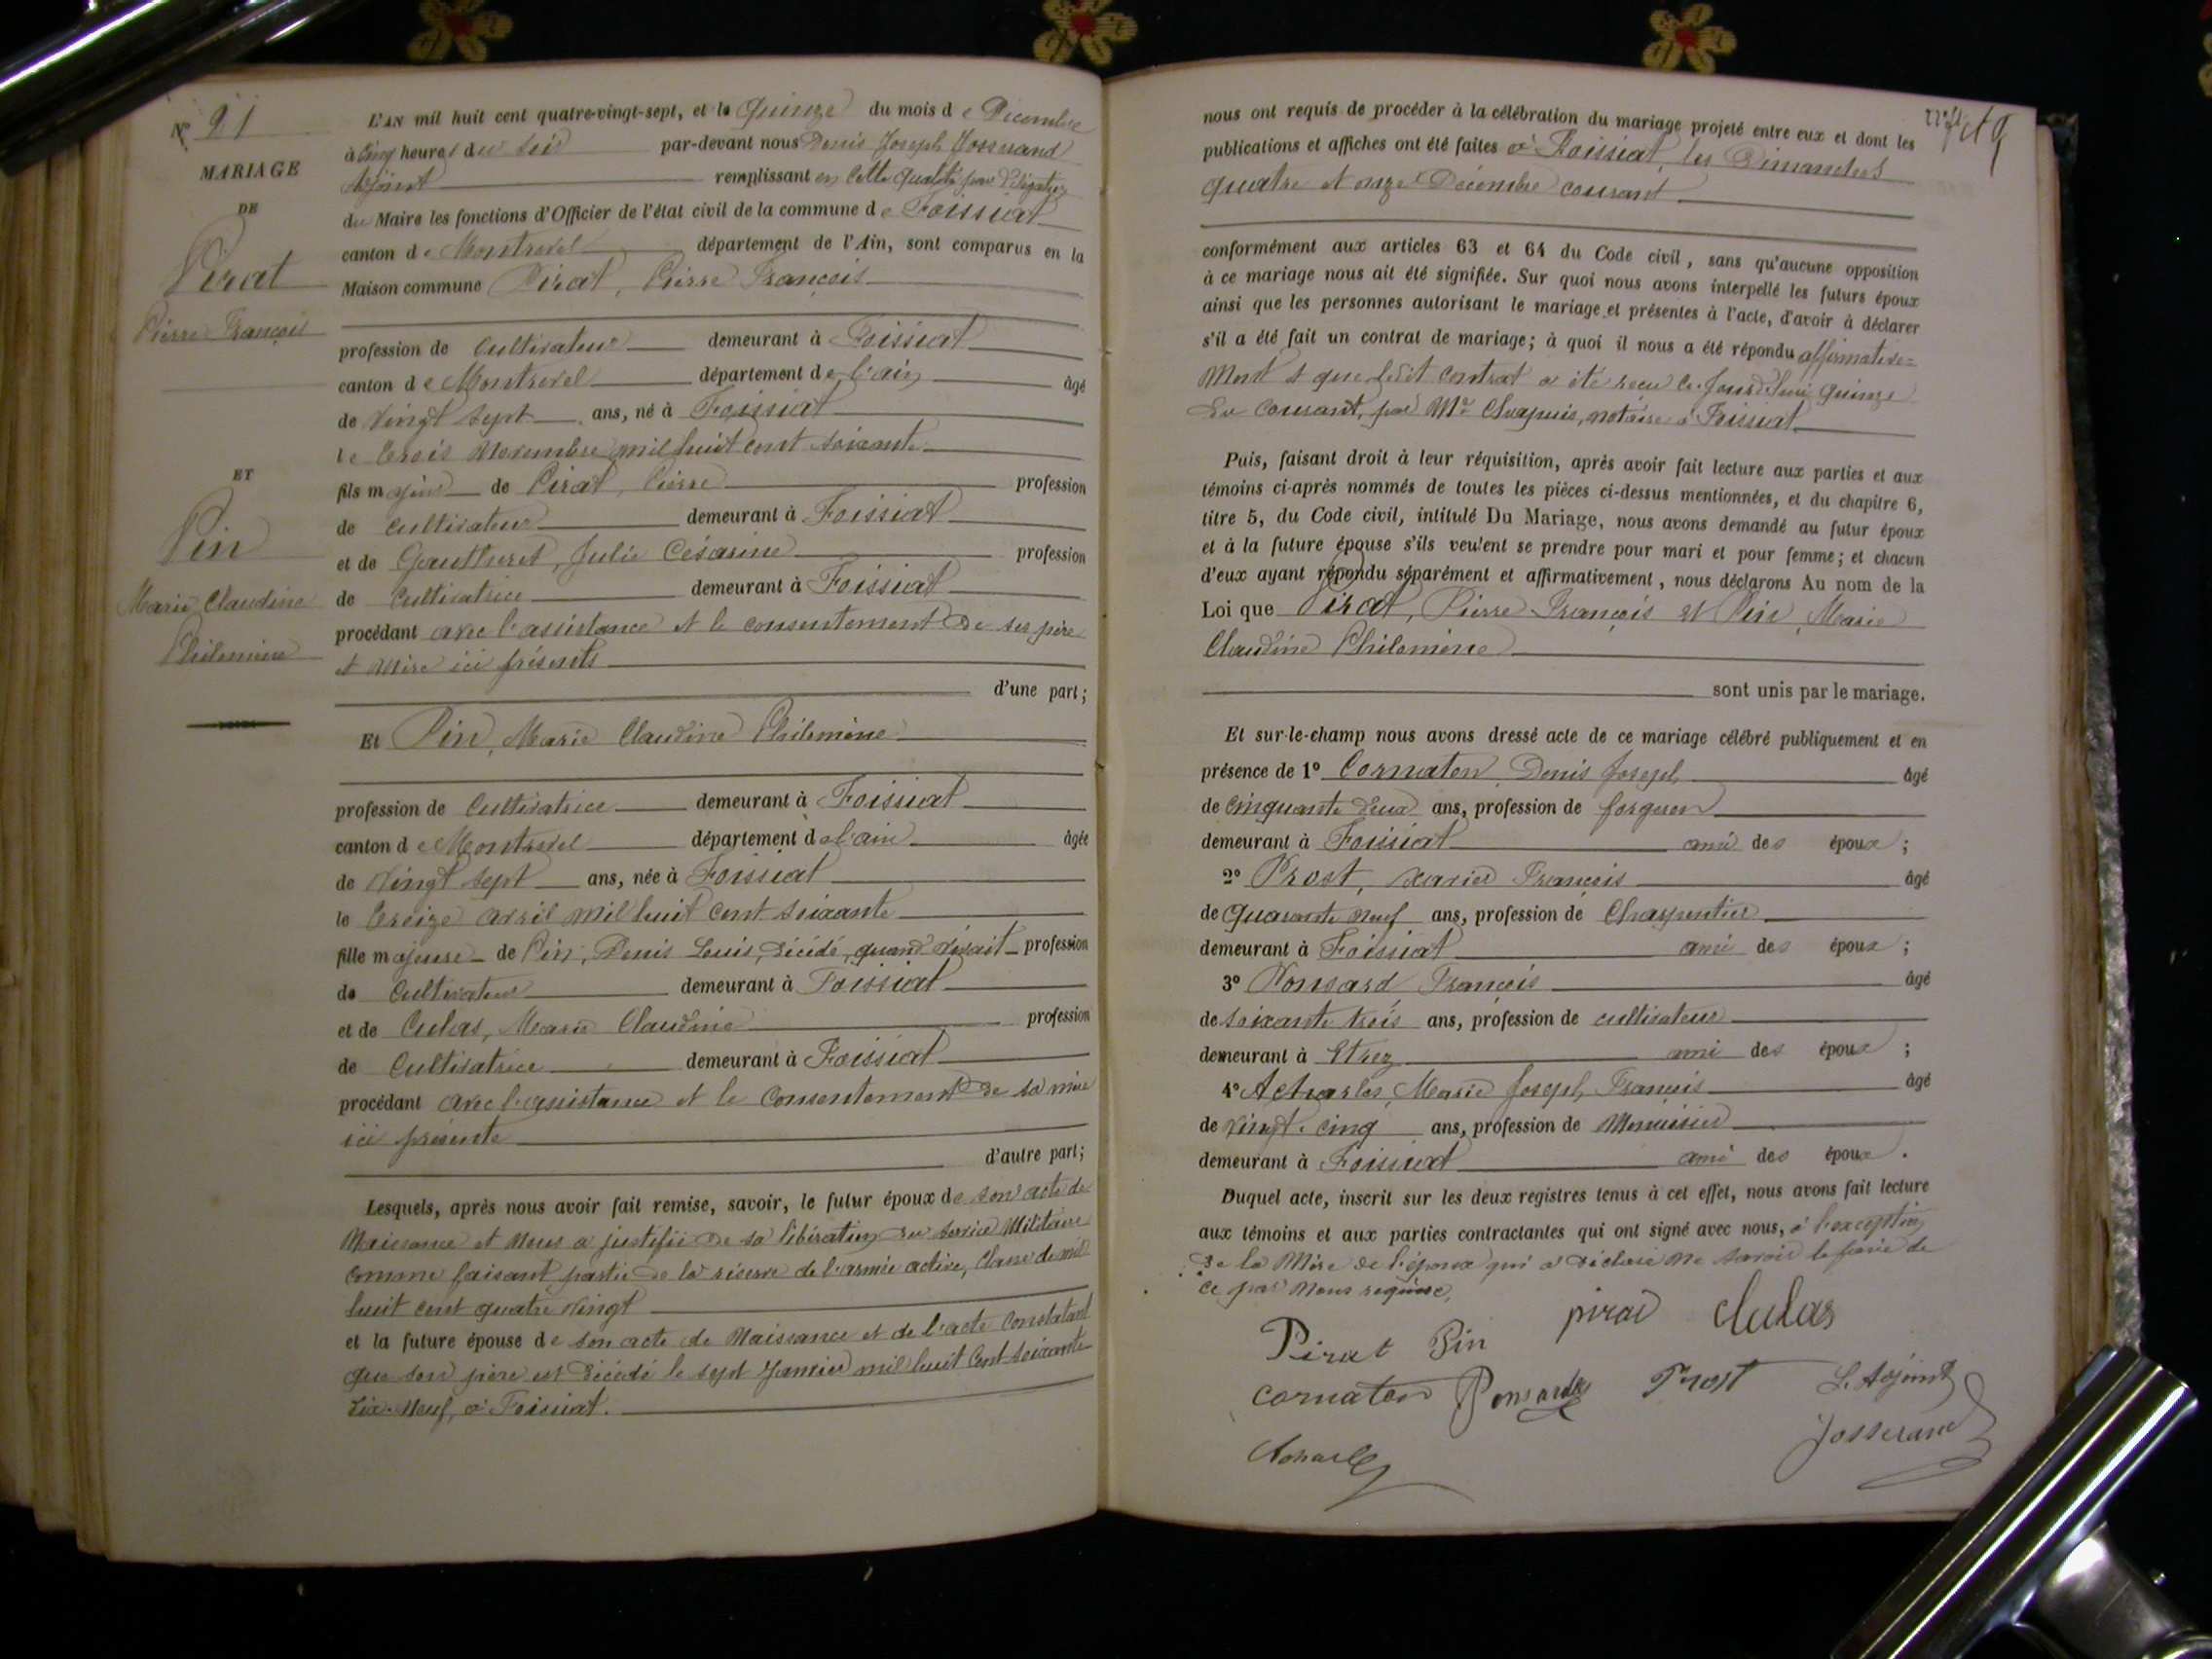 Nº 21
MARIAGE
DE
Pirat
Pierre François
ET
Pin
Marie Claudine
Philomène
L'AN mil huit cent quatre-vingt-sept, et le quinze du mois de Décembre
à cinq heures du soir par-devant nous Denis Joseph Josserand
Adjoint remplissant en cette qualité par délégation
du Maire les fonctions d'Officier de l'état civil de la commune de Foissiat
canton de Montrevel département de l'Ain, sont comparus en la
Maison commune Pirat, Pierre François
profession de cultivateur demeurant à Foissiat
canton de Montrevel département de l'ain âgé
de vingt sept ans, né à Foissiat
le trois novembre mil huit cent soixante
fils majeur de Pirat, Pierre profession
de cultivateur demeurant à Foissiat
et de Gautheret, Julie Césarine profession
de cultivatrice demeurant à Foissiat
procédant avec l'assistance et le consentement de ses père
et mère ici présents
d'une part;
Et Pin, Marie Claudine Philomène
profession de cultivatrice demeurant à Foissiat
canton de Montrevel département de l'ain âgée
de vingt sept ans, née à Foissiat
le treize avril mil huit cent soixante
fille majeure de Pin, Denis Louis, décédé, quand vivait profession
de cultivateur demeurant à Foissiat
et de Culas, Marie Claudine profession
de cultivatrice demeurant à Foissiat
procédant avec l'assistance et le consentement de sa mère
ici présente
d'autre part;
Lesquels, après nous avoir fait remise, savoir, le futur époux de son acte de
Naissance et nous a justifié de sa libération du service militaire
comme faisant partie de la réserve de l'armée active, classe de mil
huit cent quatre vingt
et la future épouse de son acte de Naissance et de l'acte constatant
que son père est décédé le sept Janvier mil huit cent soixante
dix-neuf, à Foissiat.
nous ont requis de procéder à la célébration du mariage projeté entre eux et dont les
publications et affiches ont été faites à Foissiat, les Dimanches
quatre et onze Décembre courant
conformément aux articles 63 et 64 du Code civil, sans qu'aucune opposition
à ce mariage nous ait été signifiée. Sur quoi nous avons interpellé les futurs époux
ainsi que les personnes autorisant le mariage et présentes à l'acte, d'avoir à déclarer
s'il a été fait un contrat de mariage; à quoi il nous a été répondu affirmative=
ment et que ledit contrat a été reçu ce-jourd'hui quinze
du courant, par Me Chapuis, notaire à Foissiat
Puis, faisant droit à leur réquisition, après avoir fait lecture aux parties et aux
témoins ci-après nommés de toutes les pièces ci-dessus mentionnées, et du chapitre 6,
titre 5, du Code civil, intitulé Du Mariage, nous avons demandé au futur époux
et à la future épouse s'ils veulent se prendre pour mari et pour femme; et chacun
d'eux ayant répondu séparément et affirmativement, nous déclarons Au nom de la
Loi que Pirat, Pierre François et Pin, Marie
Claudine Philomène
sont unis par le mariage.
Et sur-le-champ nous avons dressé acte de ce mariage célébré publiquement et en
présence de 1º Cornaton Denis Joseph âgé
de cinquante deux ans, profession de forgeron
demeurant à Foissiat ami des époux;
2º Prost, Xavier François âgé
de quarante neuf ans, profession de Charpentier
demeurant à Foissiat ami des époux;
3º Ponsard François âgé
de soixante trois ans, profession de cultivateur
demeurant à Etrez ami des époux;
4º Acharles, Marie Joseph François âgé
de vingt-cinq ans, profession de Menuisier
demeurant à Foissiat ami des époux.
Duquel acte, inscrit sur les deux registres tenus à cet effet, nous avons fait lecture
aux témoins et aux parties contractantes qui ont signé avec nous, à l'exception
de la Mère de l'époux qui a déclaré ne savoir le faire de
ce par nous requise.
Pirat Pin pirat Culas
cornaton Ponsard Prost L'Adjoint
Josserand